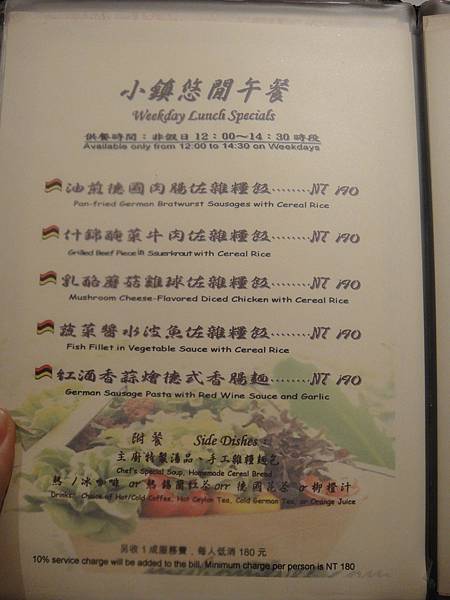 小鎮悠閒午餐
Weekday Lunch Specials
供餐時間：非假日12：00～14：30時段
Available only from 12:00 to 14:30 on Weekdays
油煎德國肉腸佐雜糧飯........NT 190
Pan-fried German Bratwurst Sausages with Cereal Rice
什錦醃菜牛肉佐雜糧飯........NT 190
Grilled Beef Piece in Sauerkraut with Cereal Rice
乳酪蘑菇雞球佐雜糧飯........NT 190
Mushroom Cheese-Flavored Diced Chicken with Cereal Rice
蔬菜醬水波魚佐雜糧飯........NT 190
Fish Fillet in Vegetable Sauce with Cereal Rice
紅酒香蒜燴德式香腸麵........NT 190
German Sausage Pasta with Red Wine Sauce and Garlic
附餐 Side Dishes：
主廚特製湯品、手工雜糧麵包
Chef's Special Soup, Homemade Cereal Bread
熱/冰咖啡 or 熱錫蘭紅茶 orr 德國花茶 or 柳橙汁
Drinks: Choice of Hot/Cold Coffee, Hot Ceylon Tea, Cold German Tea, or Orange Juice
另收1成服務費，每人低消180元
10% service charge will be added to the bill. Minimum charge per person is NT 180